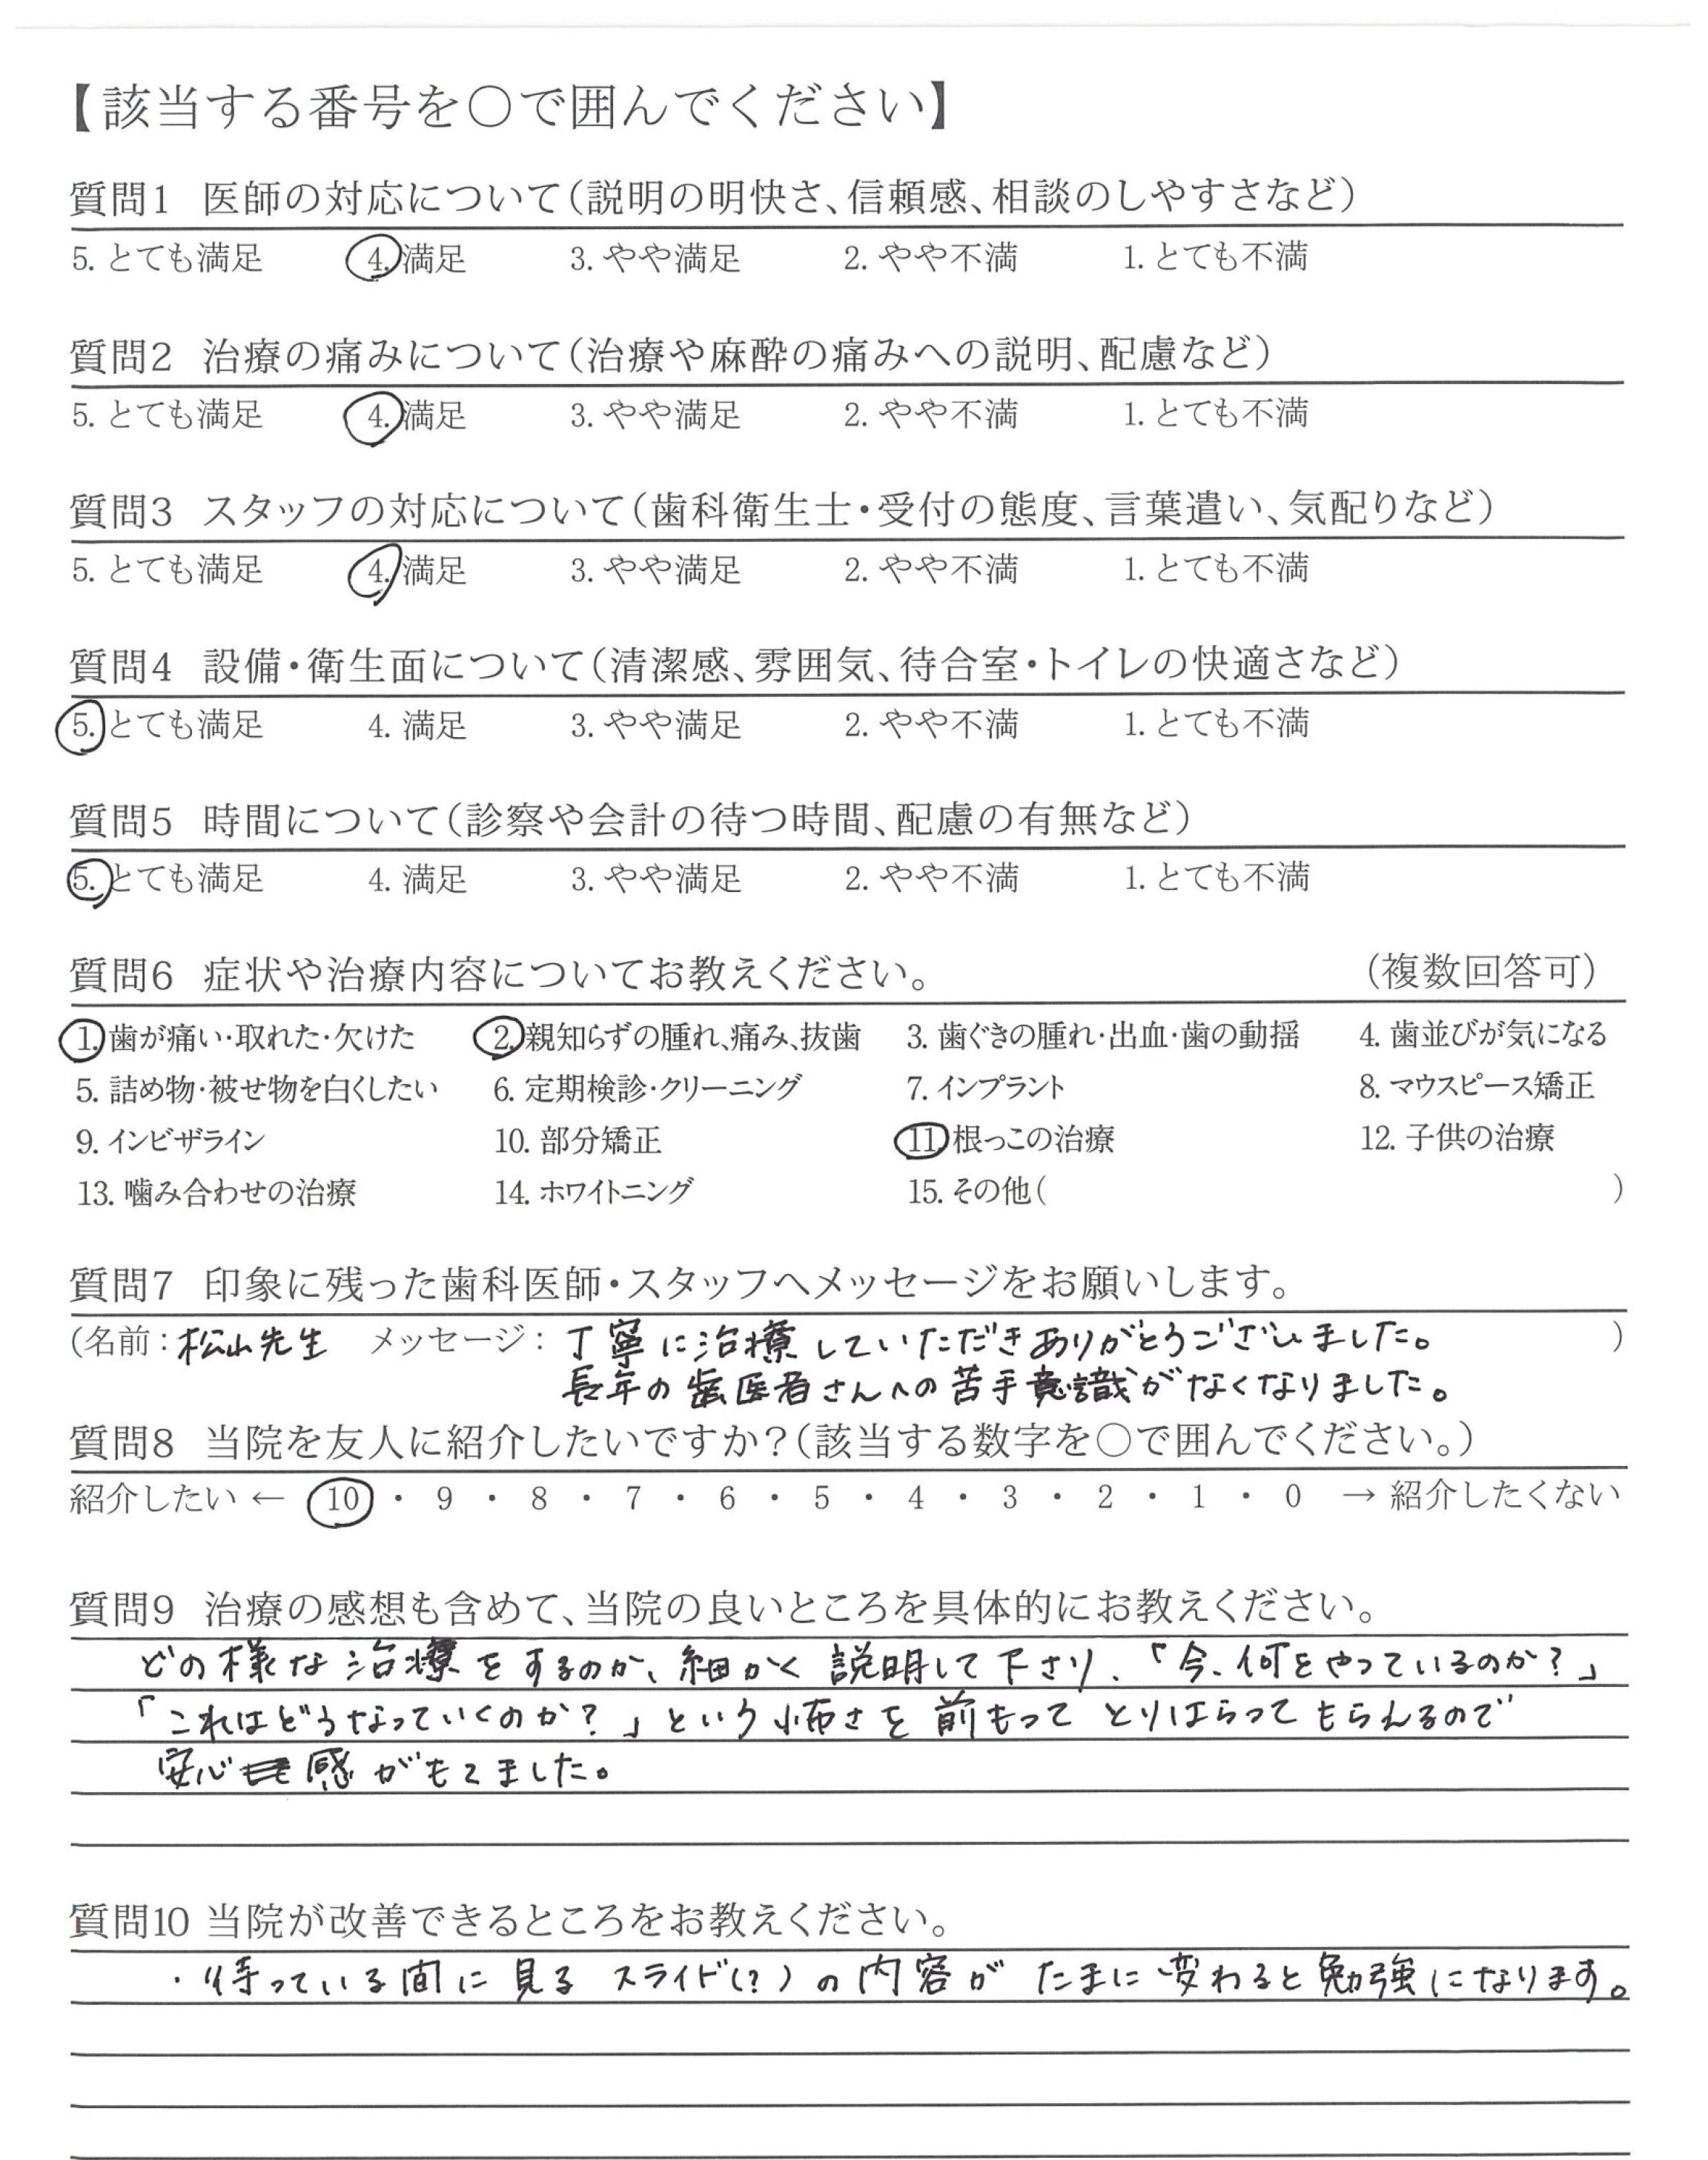 【該当する番号を○で囲んでください】
質問1 医師の対応について（説明の明快さ、信頼感、相談のしやすさなど）
5. とても満足 4. 満足 3. やや満足 2. やや不満 1. とても不満
質問2 治療の痛みについて（治療や麻酔の痛みへの説明、配慮など）
5. とても満足 4. 満足 3. やや満足 2. やや不満 1. とても不満
質問3 スタッフの対応について（歯科衛生士・受付の態度、言葉遣い、気配りなど）
5. とても満足 4. 満足 3. やや満足 2. やや不満 1. とても不満
質問4 設備・衛生面について（清潔感、雰囲気、待合室・トイレの快適さなど）
5. とても満足 4. 満足 3. やや満足 2. やや不満 1. とても不満
質問5 時間について（診察や会計の待つ時間、配慮の有無など）
5. とても満足 4. 満足 3. やや満足 2. やや不満 1. とても不満
質問6 症状や治療内容についてお教えください。 （複数回答可）
1. 歯が痛い・取れた・欠けた 2. 親知らずの腫れ、痛み、抜歯 3. 歯ぐきの腫れ・出血・歯の動揺 4. 歯並びが気になる
5. 詰め物・被せ物を白くしたい 6. 定期検診・クリーニング 7. インプラント 8. マウスピース矯正
9. インビザライン 10. 部分矯正 11. 根っこの治療 12. 子供の治療
13. 噛み合わせの治療 14. ホワイトニング 15. その他（ ）
質問7 印象に残った歯科医師・スタッフへメッセージをお願いします。
（名前：松山先生 メッセージ：丁寧に治療していただきありがとうございました。 ）
長年の歯医者さんへの苦手意識がなくなりました。
質問8 当院を友人に紹介したいですか？（該当する数字を○で囲んでください。）
紹介したい ← 10 ・ 9 ・ 8 ・ 7 ・ 6 ・ 5 ・ 4 ・ 3 ・ 2 ・ 1 ・ 0 → 紹介したくない
質問9 治療の感想も含めて、当院の良いところを具体的にお教えください。
どの様な治療をするのか、細かく説明して下さり、「今、何をやっているのか？」
「これはどうなっていくのか？」という怖さを前もってとりはらってもらえるので
安心感がもてました。
質問10 当院が改善できるところをお教えください。
・待っている間に見るスライド（？）の内容がたまに変わると勉強になります。